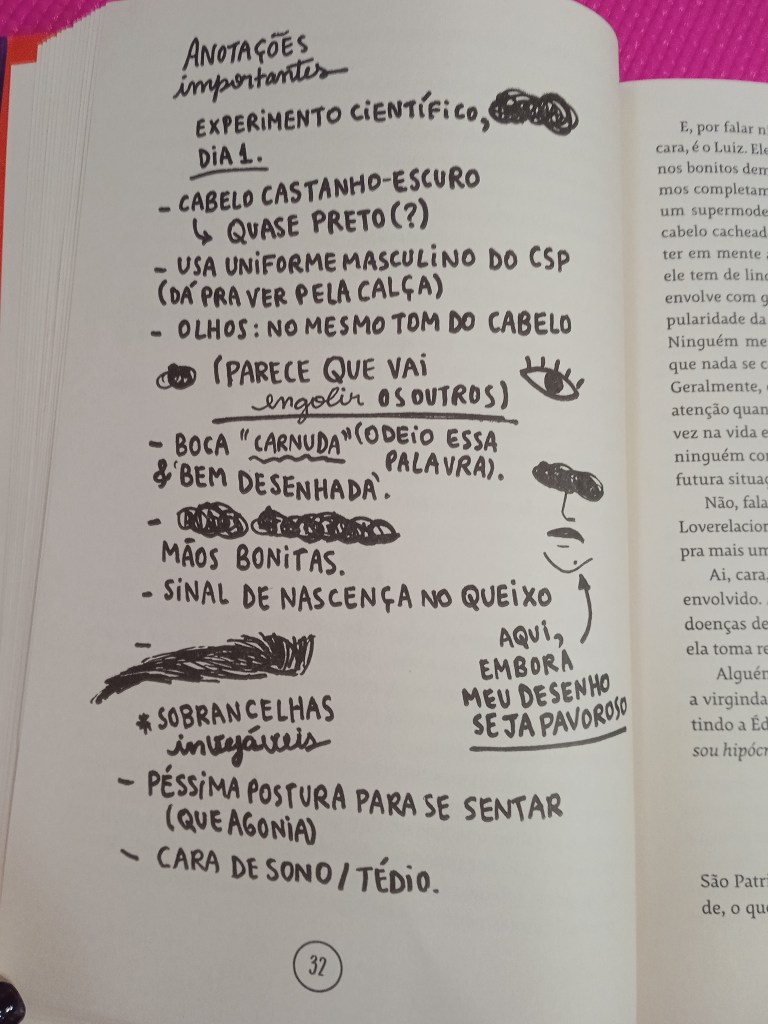 ANOTAÇÕES
importantes
EXPERIMENTO CIENTÍFICO,
DIA 1.
- CABELO CASTANHO-ESCURO
↳ QUASE PRETO (?)
- USA UNIFORME MASCULINO DO CSP
(DÁ PRA VER PELA CALÇA)
- OLHOS: NO MESMO TOM DO CABELO
(PARECE QUE VAI
engolir OS OUTROS)
- BOCA "CARNUDA" (ODEIO ESSA
PALAVRA).
& 'BEM DESENHADA'.
-
MÃOS BONITAS.
- SINAL DE NASCENÇA NO QUEIXO
AQUI,
EMBORA
MEU DESENHO
SEJA PAVOROSO
-
*SOBRANCELHAS
invejáveis
- PÉSSIMA POSTURA PARA SE SENTAR
(QUE AGONIA)
- CARA DE SONO / TÉDIO.
32
E, por falar
cara, é o Luiz. Ele
nos bonitos
mos
um
cabelo
ter em mente
ele tem de
envolve com
da
Ninguém
que nada se
Geralmente,
atenção
vez na vida e
ninguém
futura
Não,
pra mais um
Ai, cara,
envolvido.
doenças de
ela toma
a
tindo a
sou
São
de, o